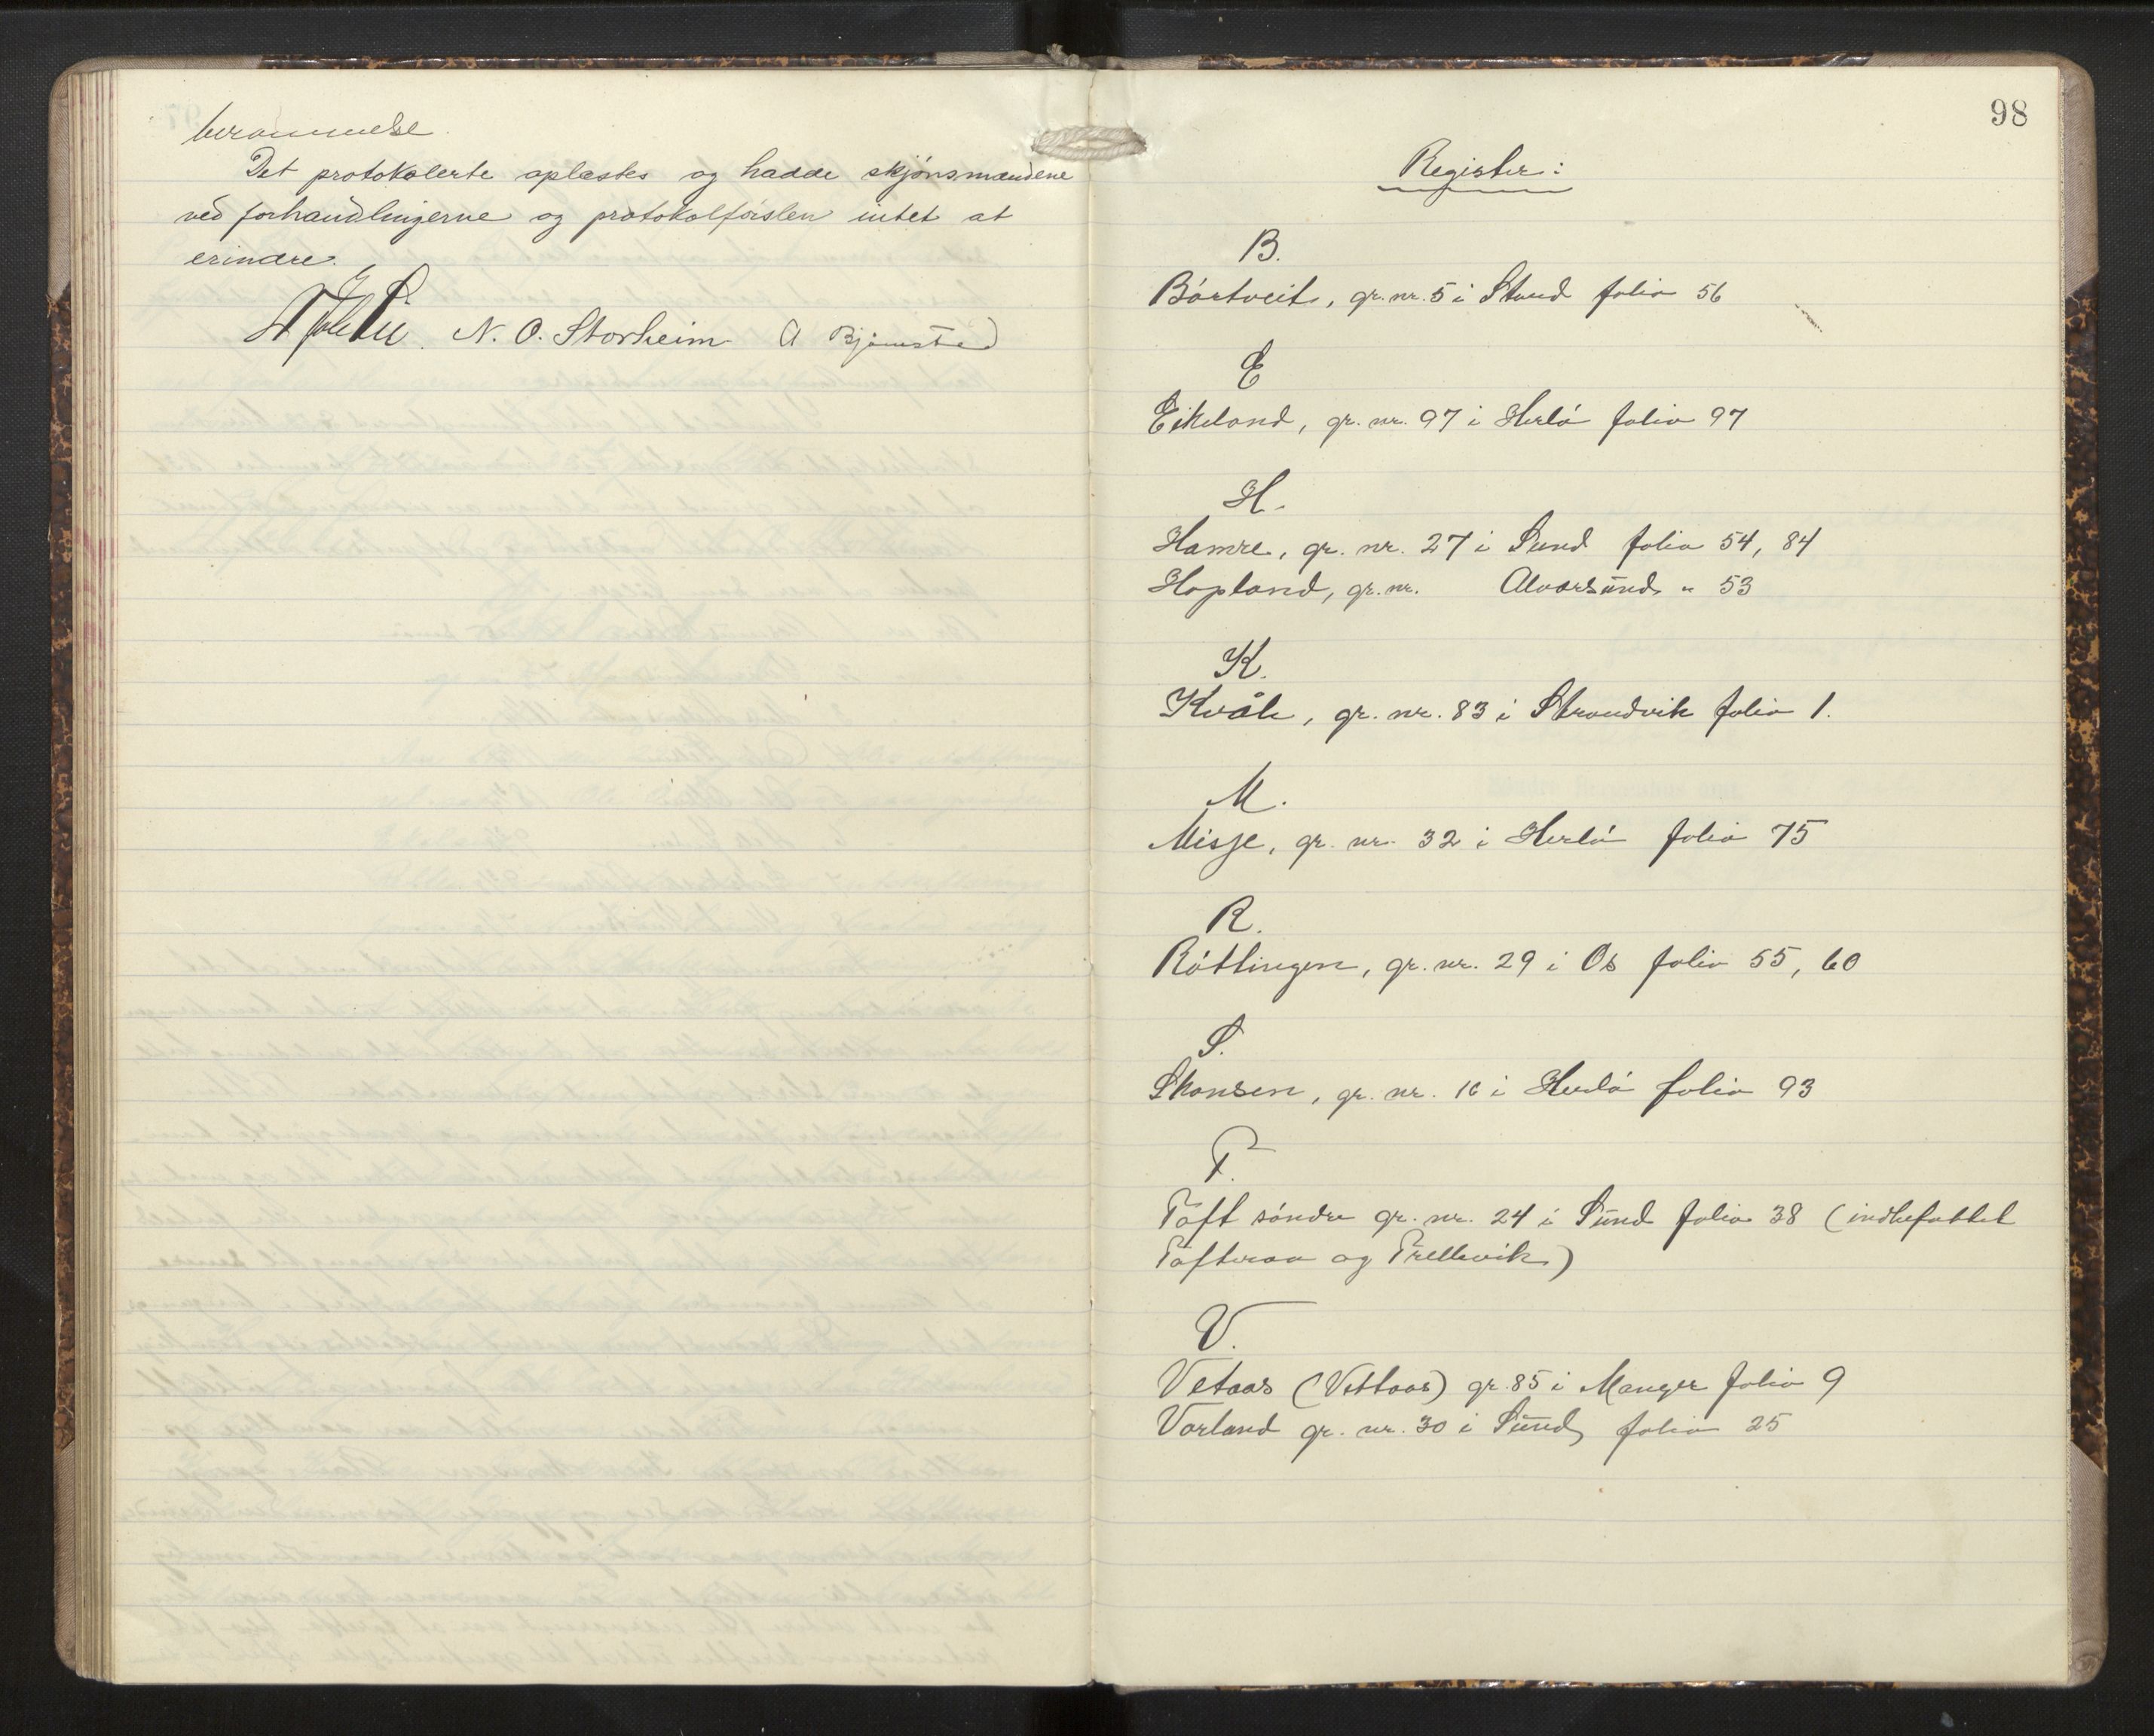 berammelse.
Det protokolerte oplæstes og hadde skjønsmændene
ved forhandlingerne og protokolførslen intet at
erindre.
N. O. Storheim A Bjørnstad
98
Register:
B.
Börtveit, gr. nr. 5 i Stord folio 56
E
Eikeland, gr. nr. 97 i Herlö folio 97
H.
Hamre, gr. nr. 27 i Sund folio 54, 84
Hopland, gr. nr. Alversund " 53
K.
Kvåle, gr. nr. 83 i Strandvik folio 1.
M.
Misje, gr. nr. 32 i Herlö folio 75
R.
Röttingen, gr. nr. 29 i Os folio 55, 60
S.
Skansen, gr. nr. 16 i Herlö folio 93
T.
Töft söndre gr. nr. 24 i Sund folio 38 (indbefattet
Töfteraa og Trellevik)
V.
Vetaas (Vettaas) gr. 85 i Manger folio 9
Vorland gr. nr. 30 i Sund, folio 25